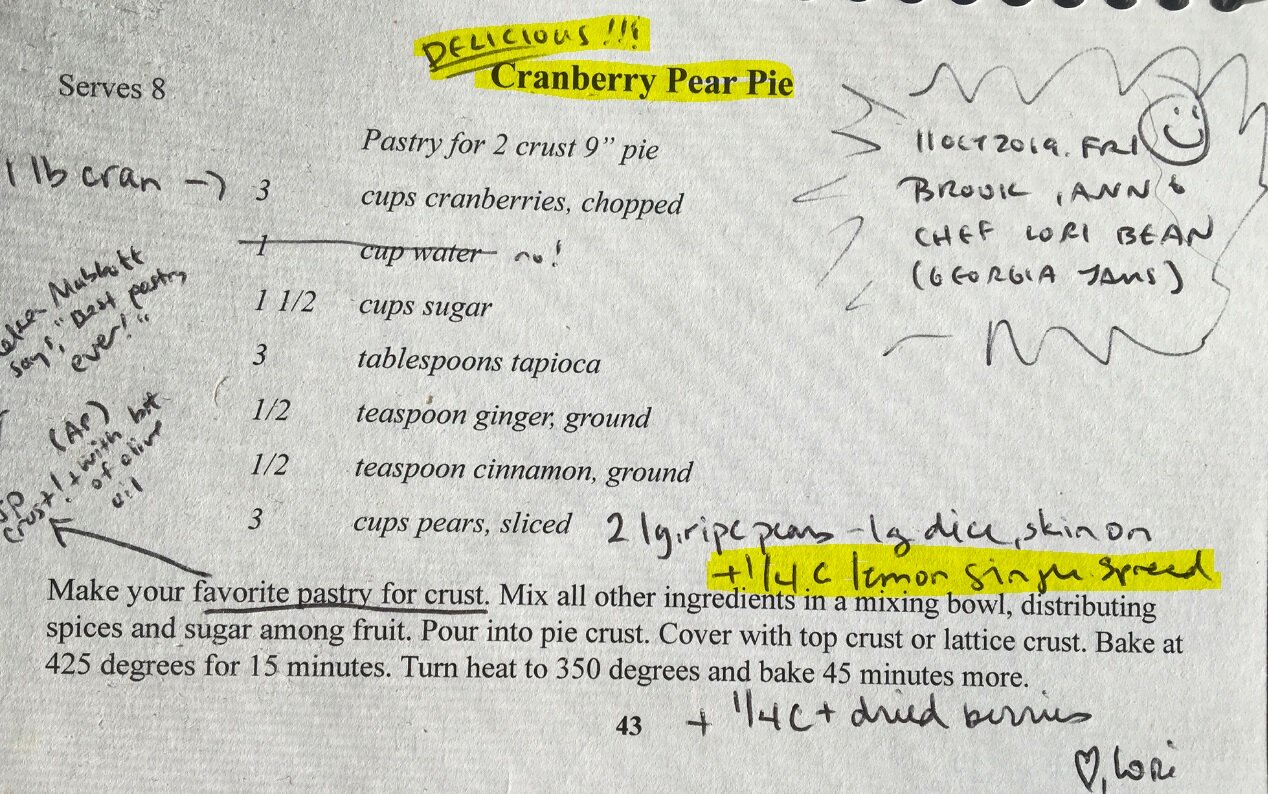 DELICIOUS!!!
Cranberry Pear Pie
Serves 8
11 OCT 2019. FRI
BROOK, ANN &
CHEF LORI BEAN
(GEORGIA JAMS)
Pastry for 2 crust 9” pie
1 lb cran → 3 cups cranberries, chopped
1 cup water no!
1 1/2 cups sugar
3 tablespoons tapioca
1/2 teaspoon ginger, ground
1/2 teaspoon cinnamon, ground
3 cups pears, sliced 2 lg. ripe pears - lg dice, skin on
+ 1/4 c lemon ginger spread
says, "Best pastry
ever!"
(AP)
crust! + with bit
of olive
oil
Make your favorite pastry for crust. Mix all other ingredients in a mixing bowl, distributing
spices and sugar among fruit. Pour into pie crust. Cover with top crust or lattice crust. Bake at
425 degrees for 15 minutes. Turn heat to 350 degrees and bake 45 minutes more.
43
+ 1/4 c + dried berries
♡, Lori